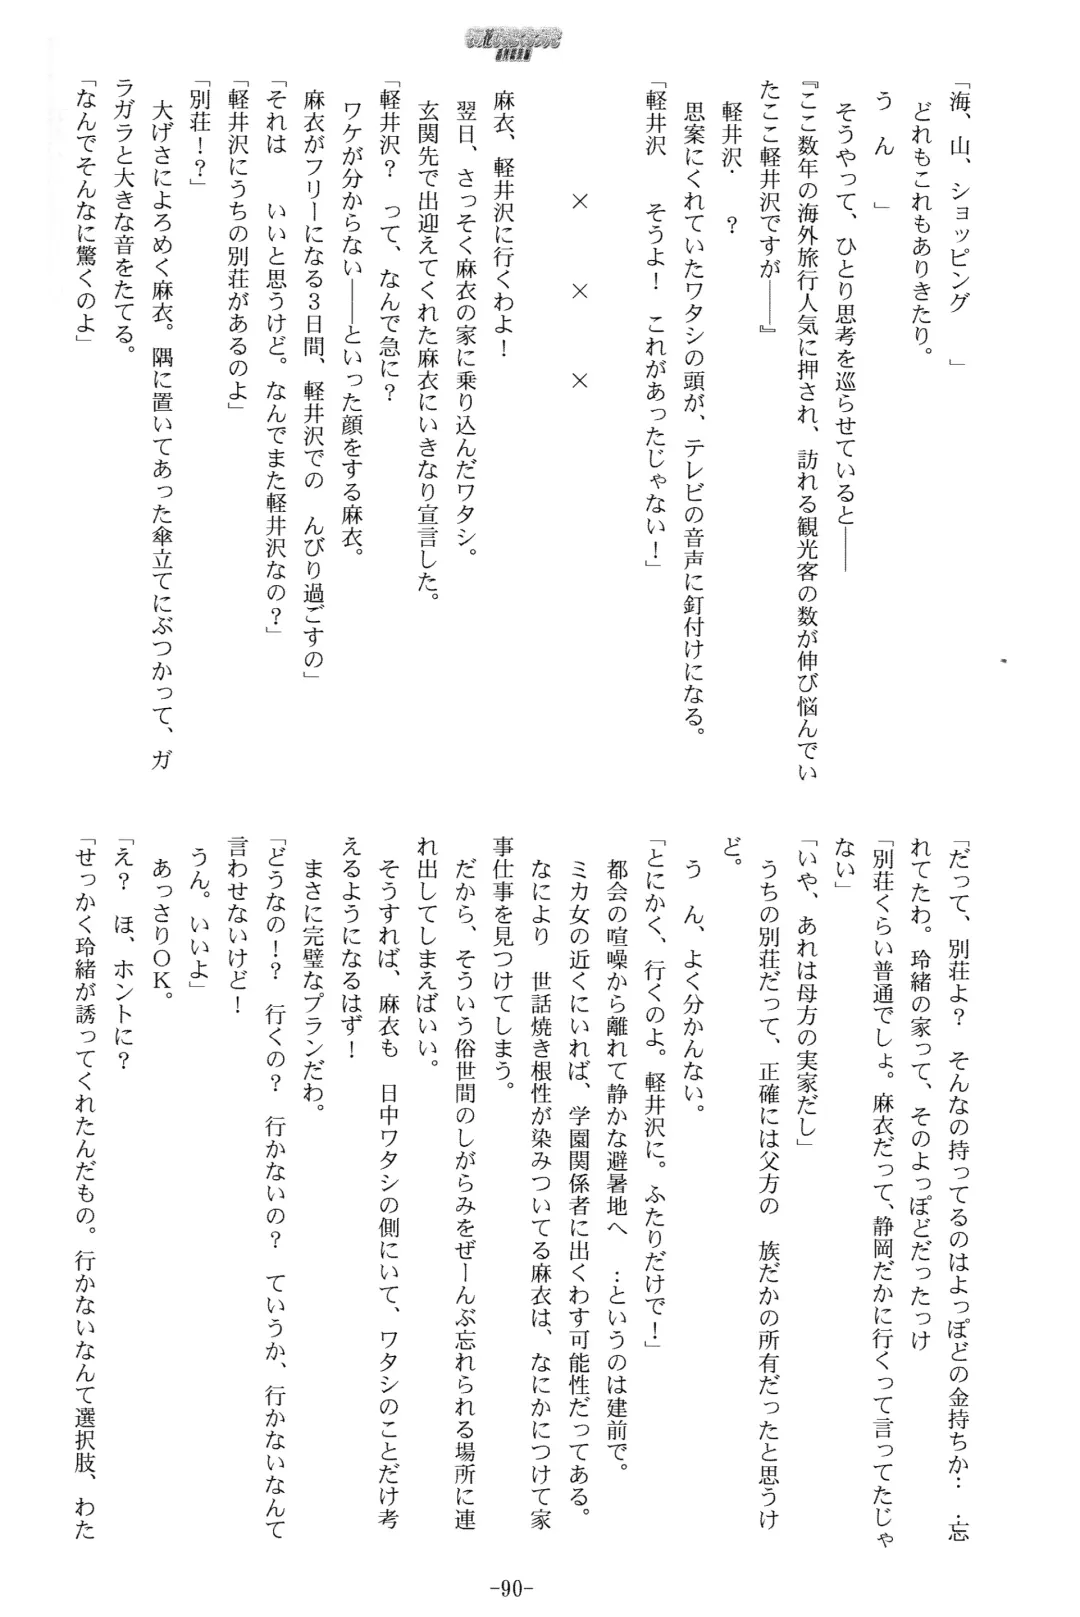 「海、山、ショッピング　　」
　どれもこれもありきたり。
　うん　　」
　そうやって、ひとり思考を巡らせていると――
『ここ数年の海外旅行人気に押され、訪れる観光客の数が伸び悩んでい
たここ軽井沢ですが――』
　軽井沢・　？
　思案にくれていたワタシの頭が、テレビの音声に釘付けになる。
「軽井沢　　そうよ！　これがあったじゃない！」
×　　×　　×
麻衣、軽井沢に行くわよ！
　翌日、さっそく麻衣の家に乗り込んだワタシ。
　玄関先で出迎えてくれた麻衣にいきなり宣言した。
「軽井沢？　って、なんで急に？
　ワケが分からない――といった顔をする麻衣。
　麻衣がフリーになる３日間、軽井沢での　んびり過ごすの」
「それは　　いいと思うけど。なんでまた軽井沢なの？」
「軽井沢にうちの別荘があるのよ」
「別荘！？」
　大げさによろめく麻衣。隅に置いてあった傘立てにぶつかって、ガ
ラガラと大きな音をたてる。
「なんでそんなに驚くのよ」
「だって、別荘よ？　そんなの持ってるのはよっぽどの金持ちか…　．忘
れてたわ。玲緒の家って、そのよっぽどだったっけ
「別荘くらい普通でしょ。麻衣だって、静岡だかに行くって言ってたじゃ
ない」
「いや、あれは母方の実家だし」
　うちの別荘だって、正確には父方の　族だかの所有だったと思うけ
ど。
　う　ん、よく分かんない。
「とにかく、行くのよ。軽井沢に。ふたりだけで！」
　都会の喧噪から離れて静かな避暑地へ　…というのは建前で。
　ミカ女の近くにいれば、学園関係者に出くわす可能性だってある。
　なにより　世話焼き根性が染みついてる麻衣は、なにかにつけて家
事仕事を見つけてしまう。
　だから、そういう俗世間のしがらみをぜーんぶ忘れられる場所に連
れ出してしまえばいい。
　そうすれば、麻衣も　日中ワタシの側にいて、ワタシのことだけ考
えるようになるはず！
　まさに完璧なプランだわ。
「どうなの！？　行くの？　行かないの？　ていうか、行かないなんて
言わせないけど！
　うん。いいよ」
　あっさりＯＫ。
「え？　ほ、ホントに？
「せっかく玲緒が誘ってくれたんだもの。行かないなんて選択肢、わた
-90-